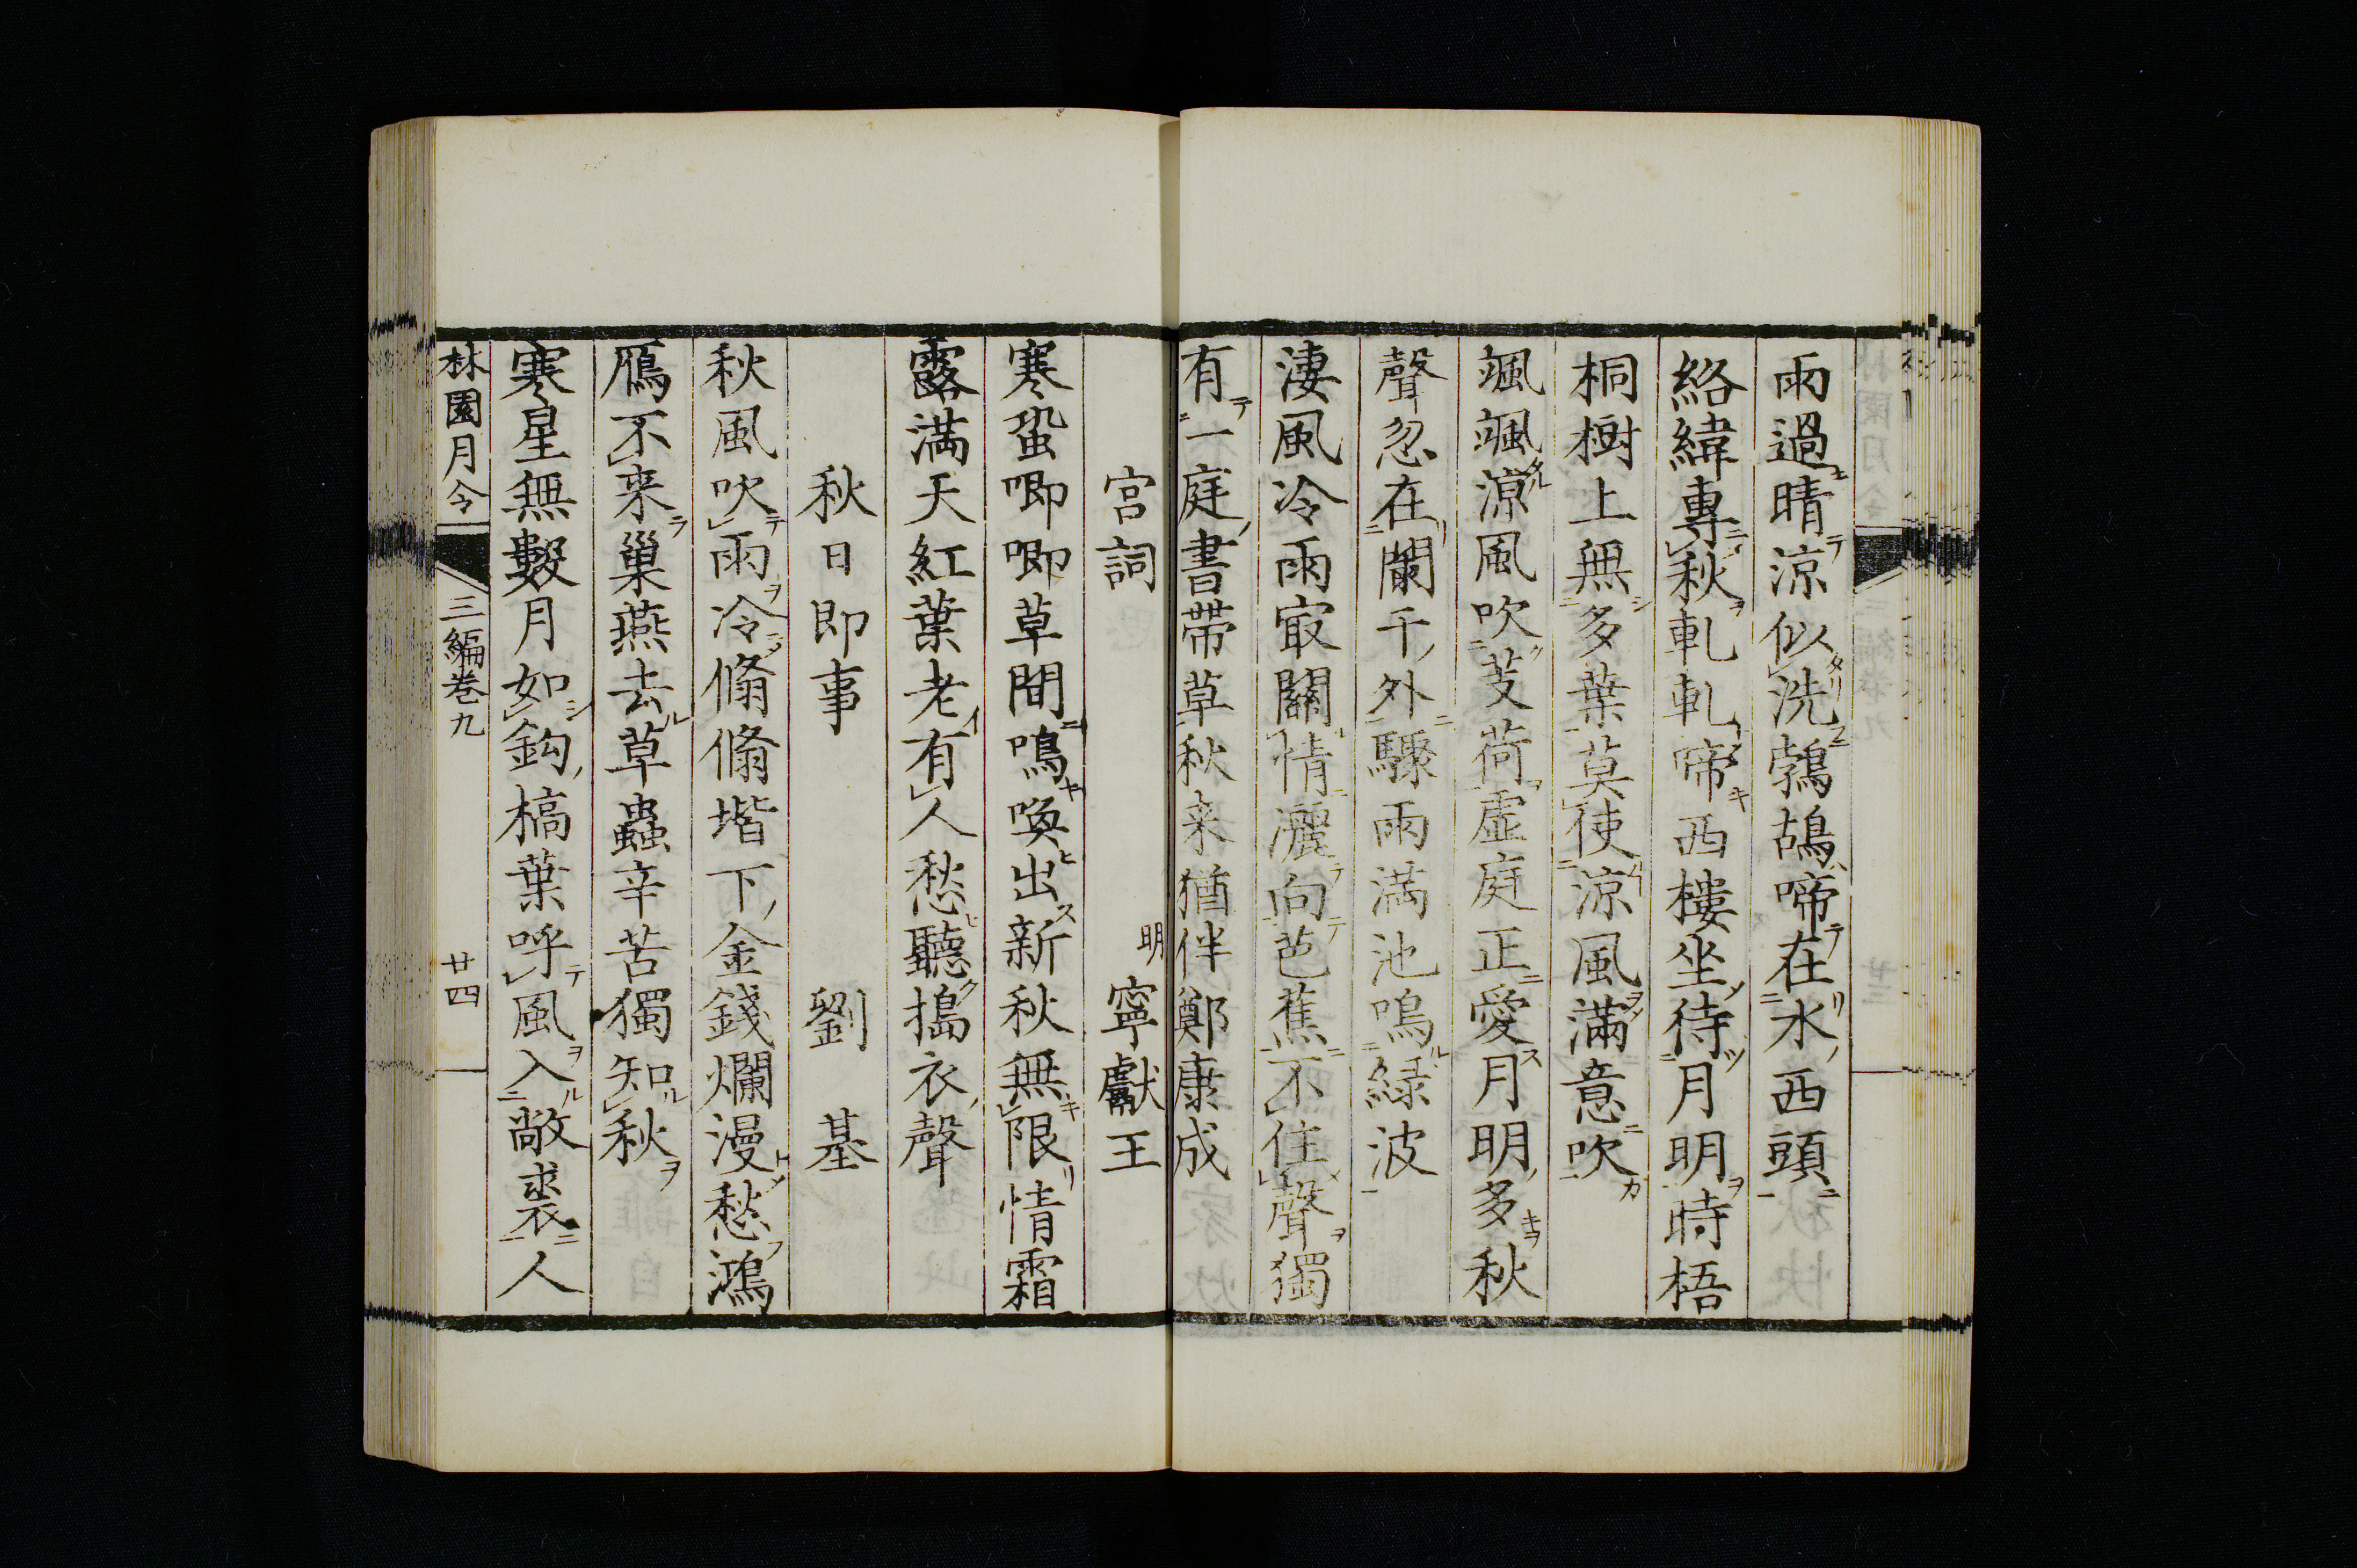 雨過晴涼似洗鵓鴣啼在水西頭
絡緯專秋軋軋啼西樓坐待月明時梧
桐樹上無多葉莫使涼風滿意吹
颯颯涼風吹芰荷虛庭正愛月明多秋
聲忽在闌干外驟雨満池鳴緑波
淒風冷雨㝡關情灑向芭蕉不住聲獨
有一庭書帶草秋来猶伴鄭康成
宮詞 明 寧獻王
寒蛩唧唧草間鳴喚出新秋無限情霜
露満天紅葉老有人愁聽搗衣聲
秋日即事 劉基
秋風吹雨冷翛翛堦下金錢爛漫愁鴻
鴈不来巢燕去草蟲辛苦獨知秋
寒星無數月如鈎槁葉呼風入敝裘人
林園月令 三編卷九 廿四